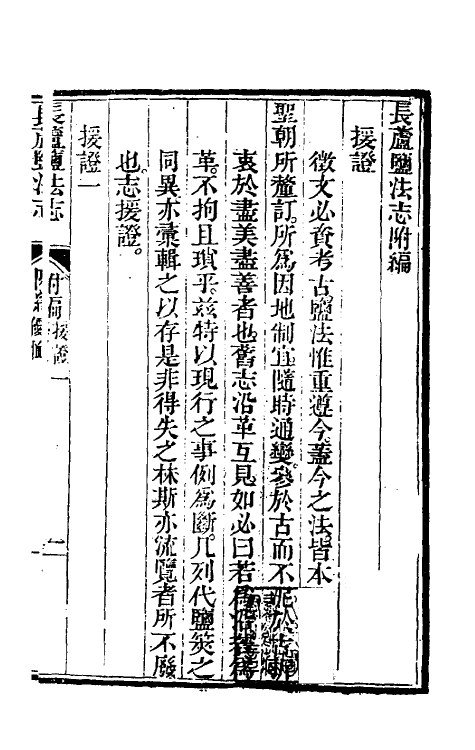 長蘆鹽法志附編
援證
徵文必資考古鹽法惟重遵今蓋今之法皆本
聖朝所釐訂所為因地制宜隨時通變參於古而不泥於古折
衷於盡美盡善者也舊志沿革互見如必曰若為沿若為
革不拘且瑣乎茲特以現行之事例為斷凡列代鹽筴之
同異亦彙輯之以存是非得失之林斯亦流覽者所不廢
也志援證。
援證一
長蘆鹽法志
附編 援證一
一